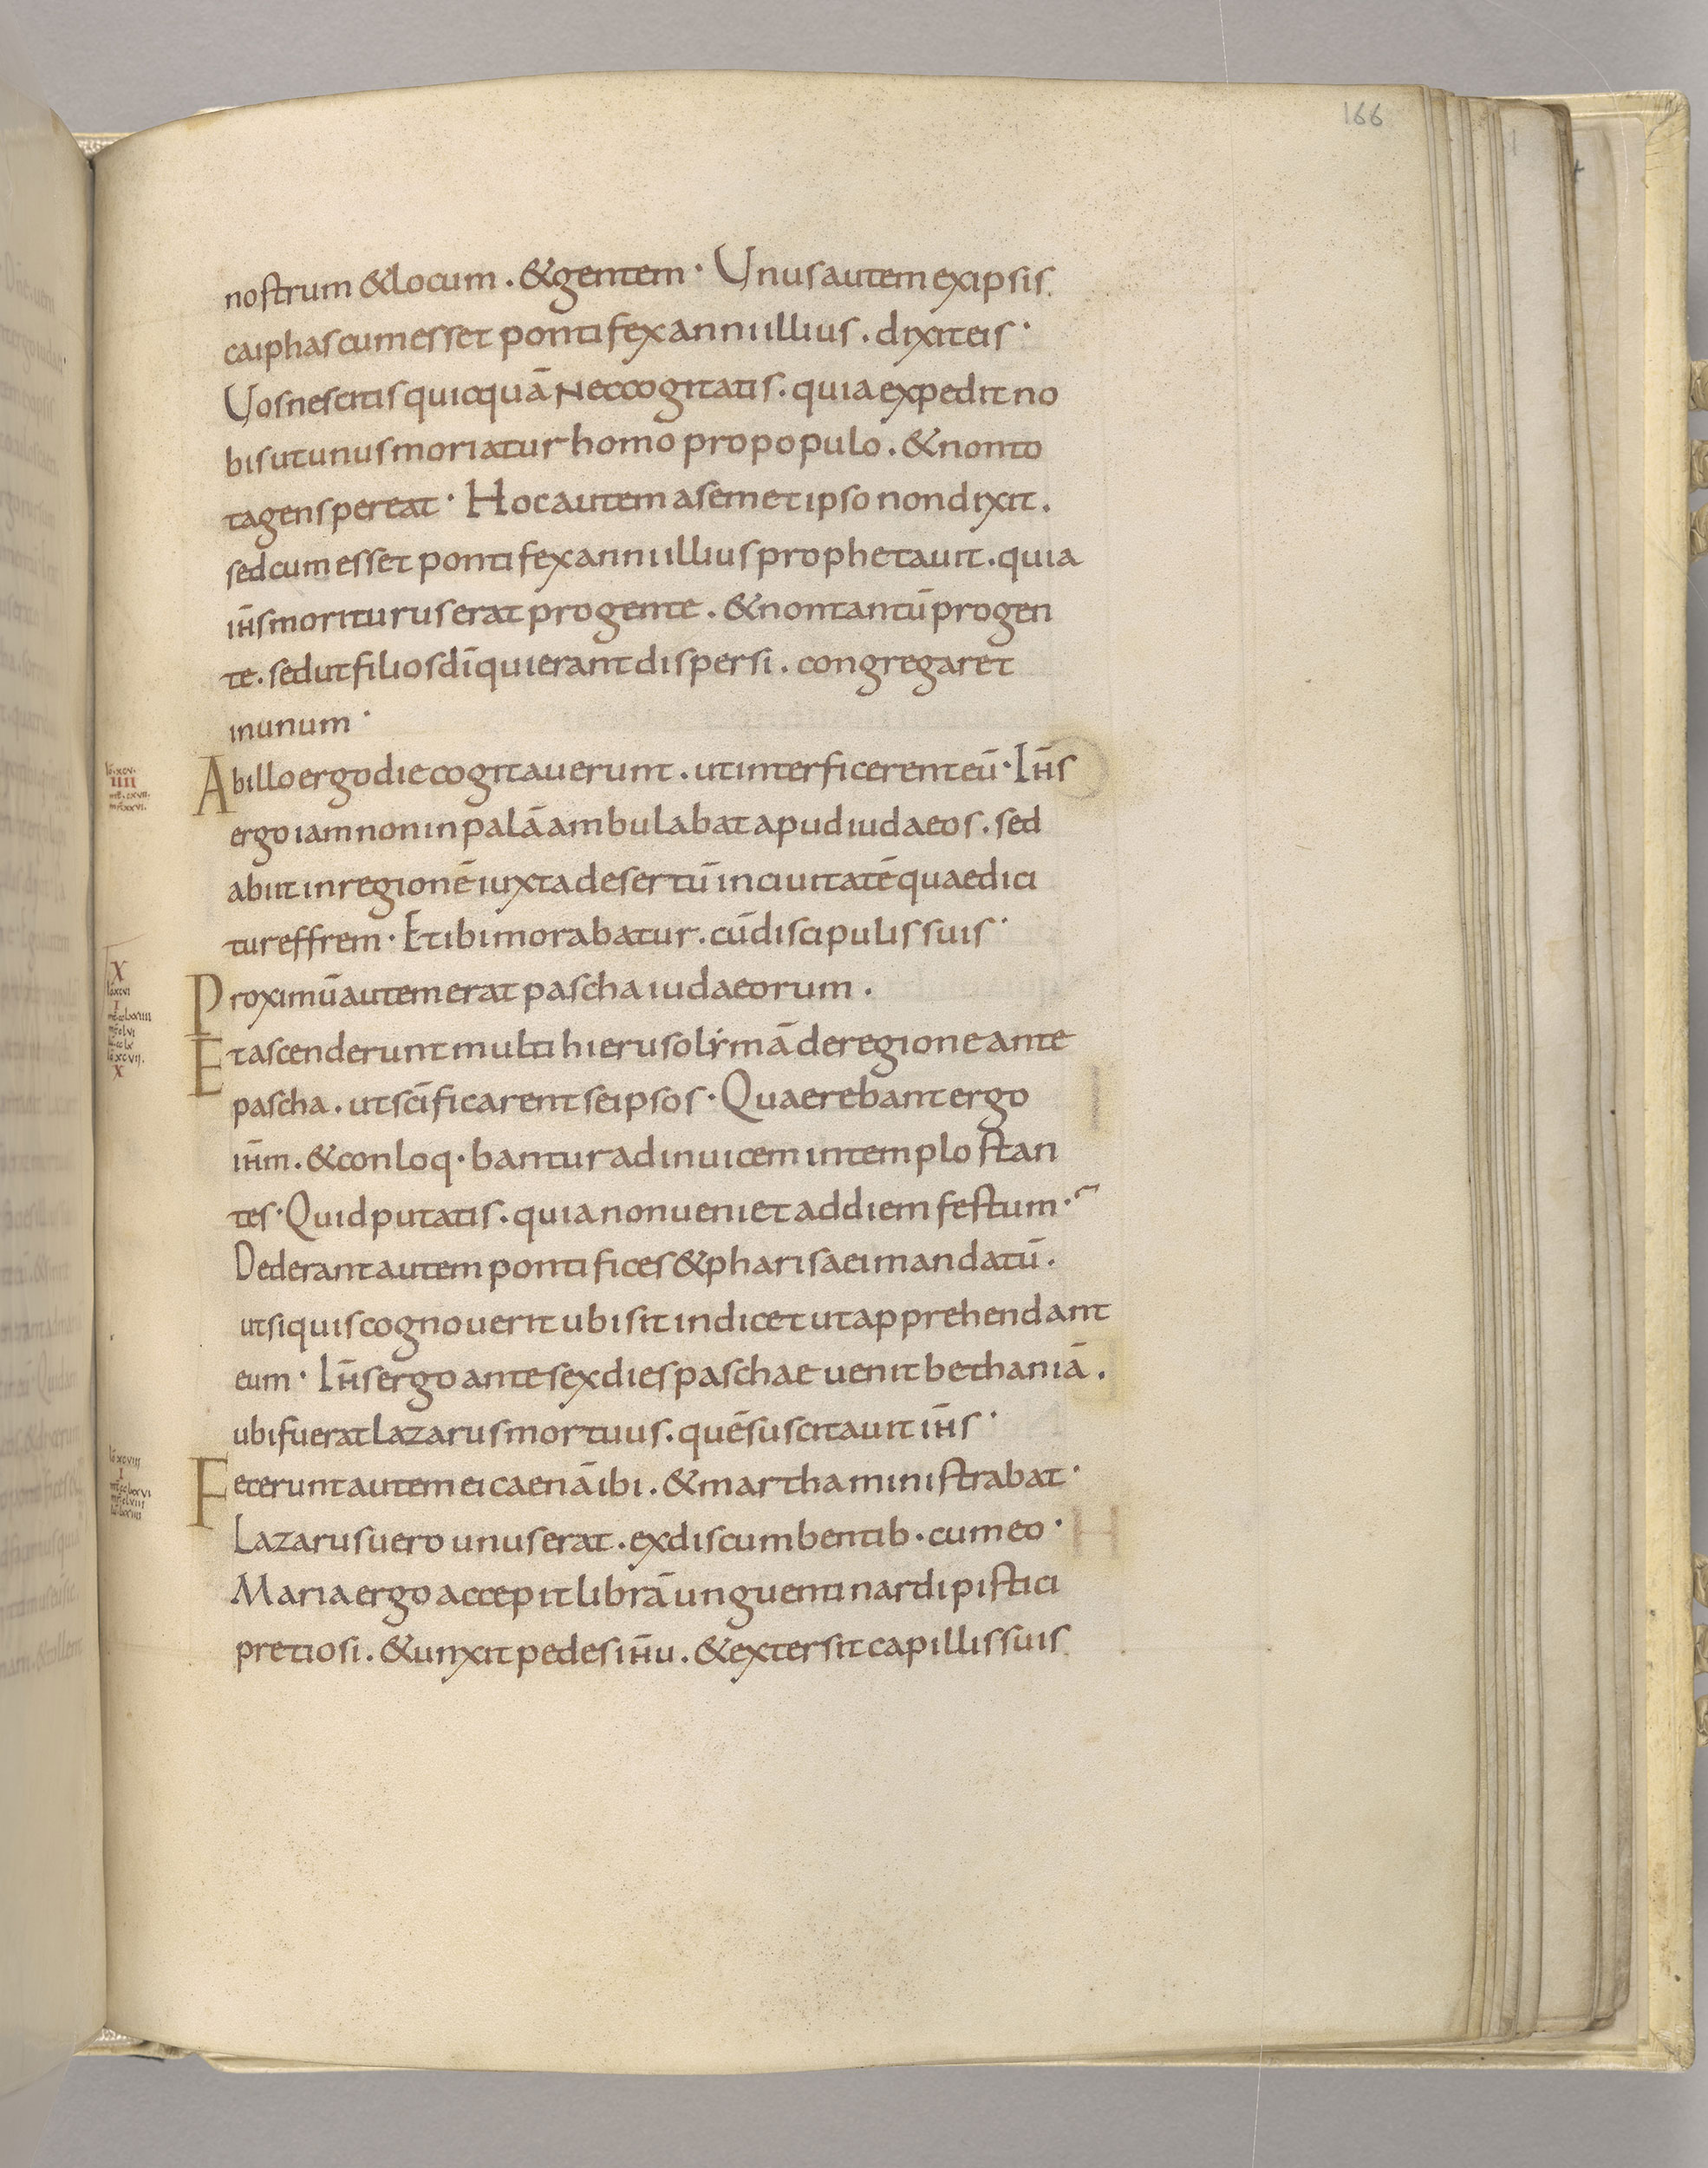 166
nostrum & locum . & gentem · Unus autem ex ipsis
caiphas cum esset pontifex anni illius . dixit eis ·
Uos nescitis quicquā Nec cogitatis . quia expedit no
bis ut unus moriatur homo pro populo . & non to
ta gens pereat · Hoc autem a semet ipso non dixit .
sed cum esset pontifex anni illius prophetauit . quia
ih̄s moriturus erat pro gente . & non tantū pro gen
te . sed ut filios dī qui erant dispersi . congregaret
in unum ·
Ab illo ergo die cogitauerunt . ut interficerent eū · Ih̄s
ergo iam non in palā ambulabat apud iudaeos . sed
abiit in regionē iuxta desertū in ciuitatē quae dici
tur effrem · Et ibi morabatur . cū discipulis suis ·
Proximū autem erat pascha iudaeorum .
Et ascenderunt multi hierusolẏmā de regione ante
pascha . ut scīficarent se ipsos · Quaerebant ergo
ih̄m . & conloq · bantur ad inuicem in templo stan
tes · Quid putatis . quia non ueniet ad diem festum ·
Dederant autem pontifices & pharisaei mandatū .
ut si quis cognouerit ubi sit indicet ut apprehendant
eum · Ih̄s ergo ante sex dies paschae uenit bethaniā .
ubi fuerat Lazarus mortuus . quē suscitauit ih̄s ·
Fecerunt autem ei caenā ibi . & martha ministrabat ·
Lazarus uero unus erat . ex discumbentib · cum eo ·
Maria ergo accepit librā unguenti nardi pistici
pretiosi . & unxit pedes ih̄u . & extersit capillis suis